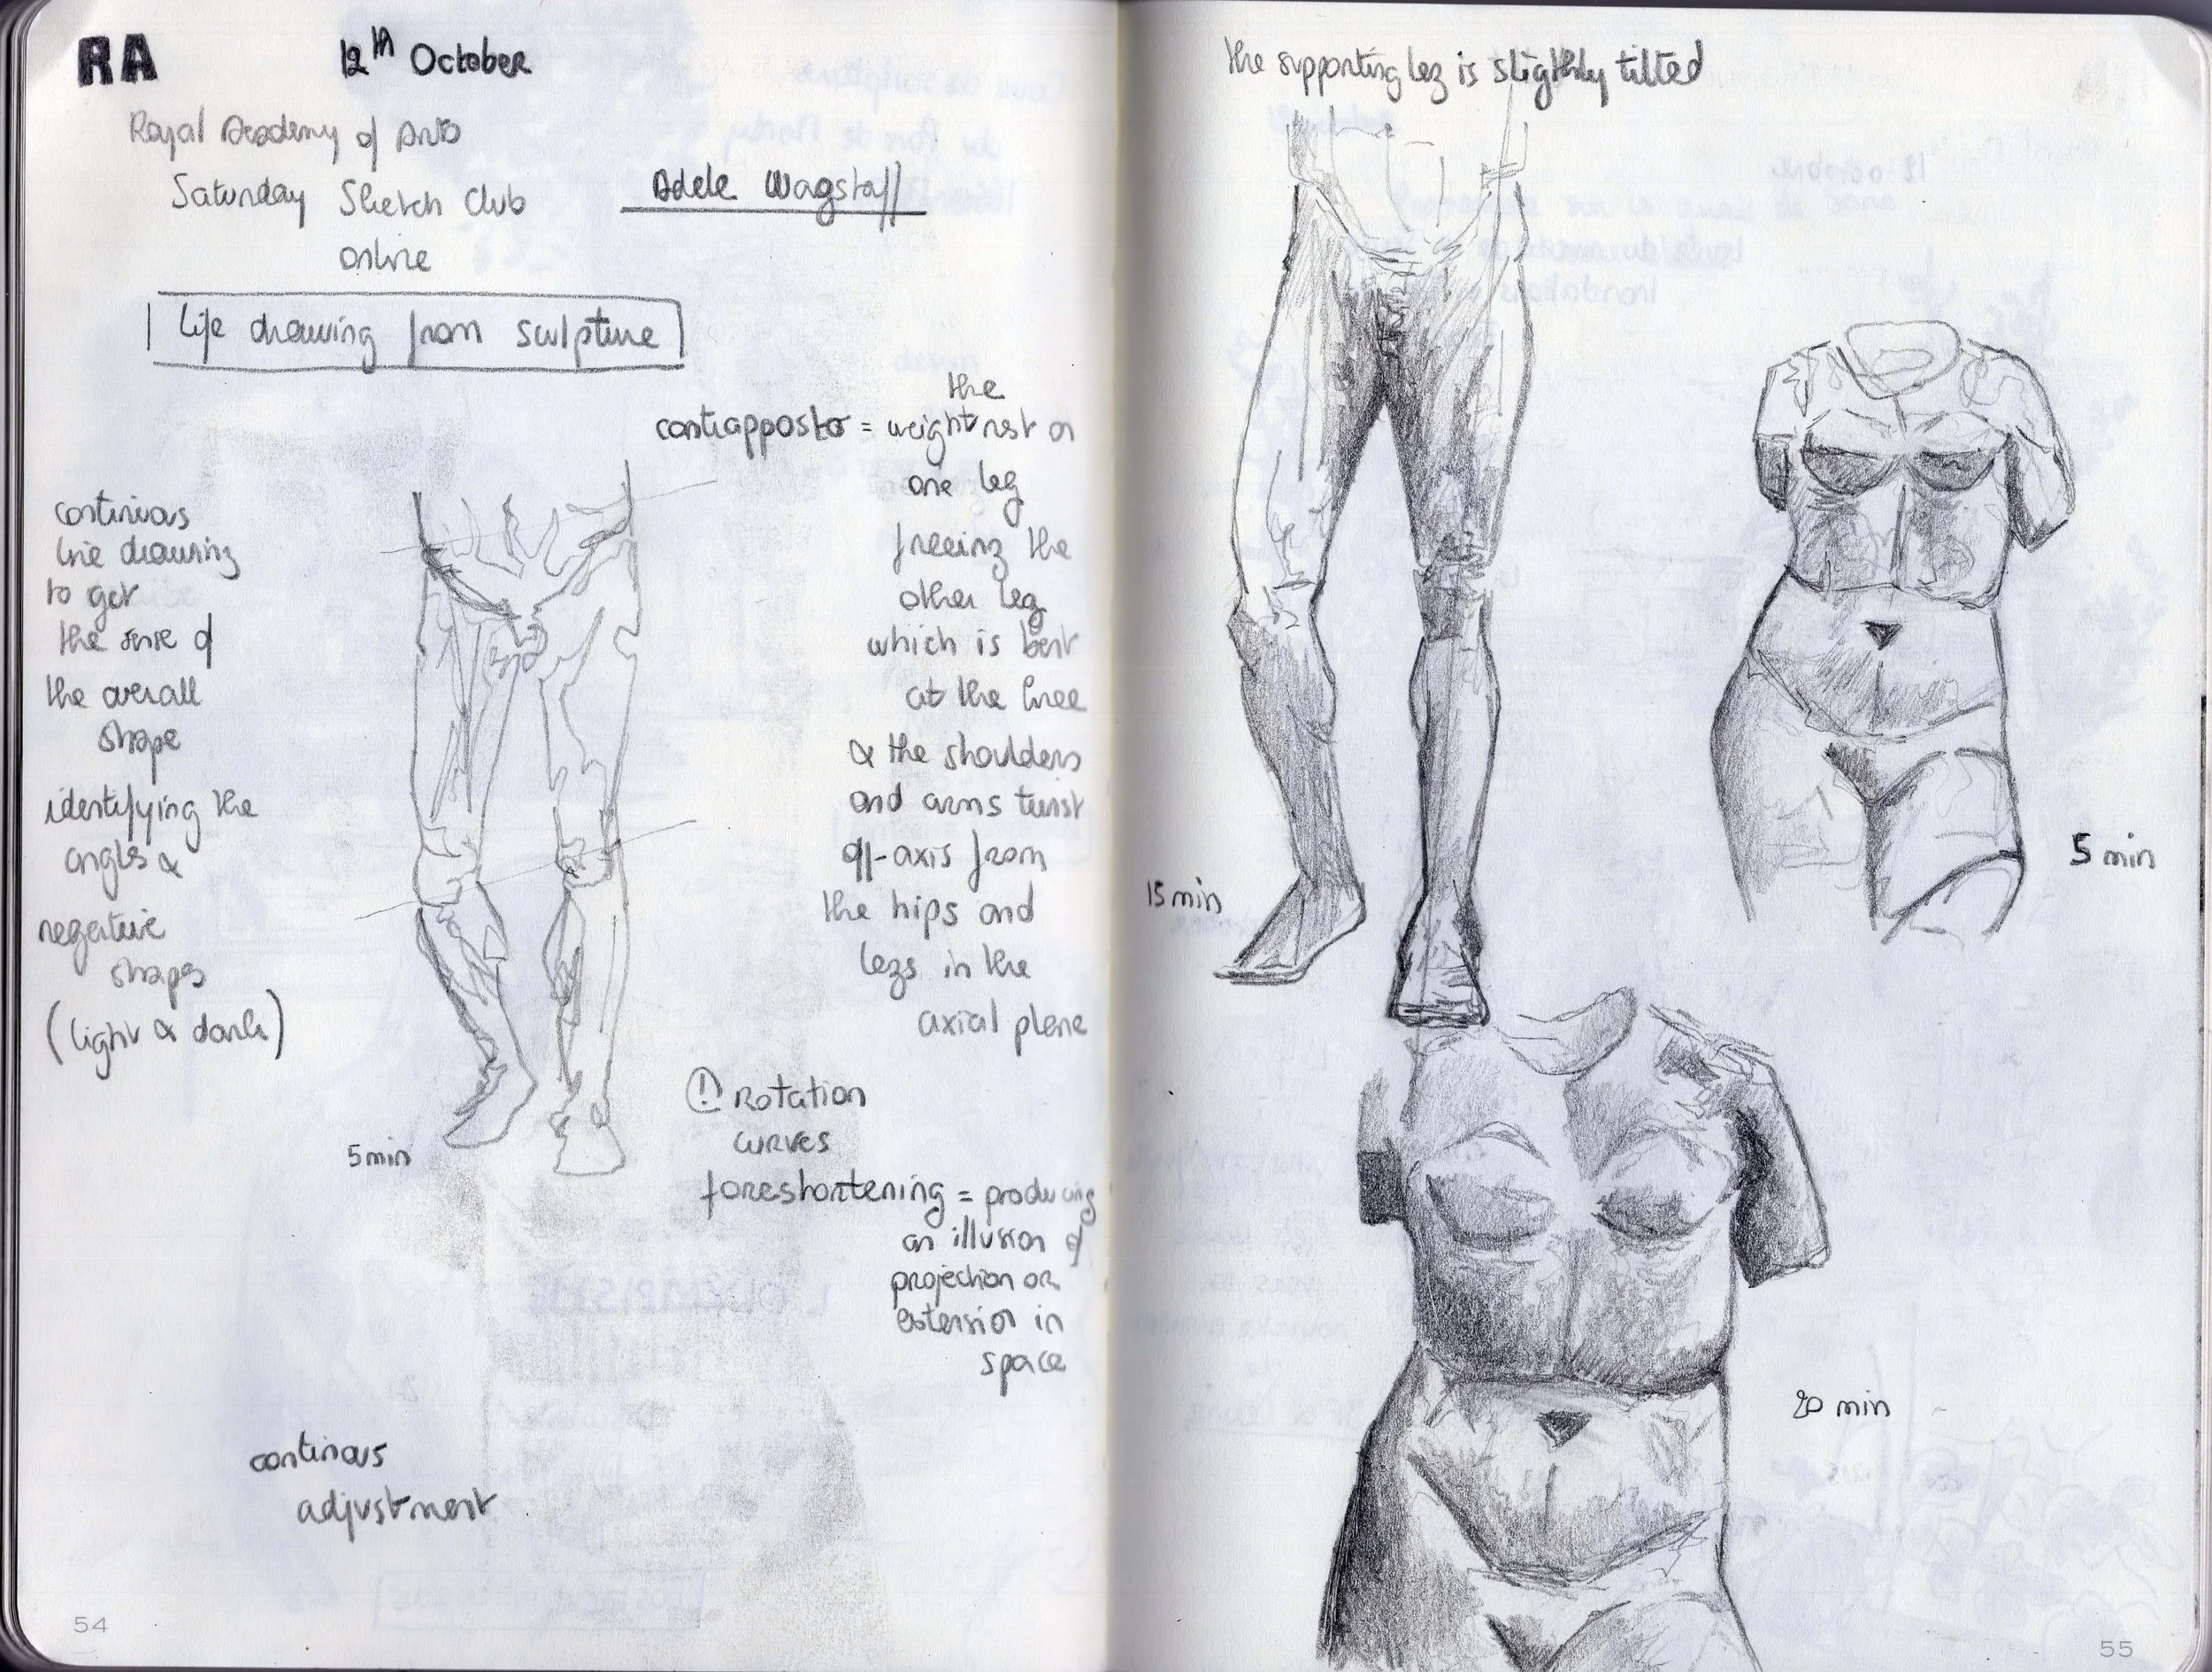 RA
12th October
Royal Academy of Arts
Saturday Sketch Club
online
Adele Wagstaff
Life drawing from sculpture
continious
line drawing
to get
the sense of
the overall
shape
identifying the
angles &
negative
shapes
(light & dark)
5 min
the
contrapposto = weight rest on
one leg
freeing the
other leg
which is bent
at the knee
& the shoulders
and arms twist
off-axis from
the hips and
legs in the
axial plane
! rotation
curves
foreshortening = producing
an illusion of
projection or
extension in
space
continous
adjustment
54
the supporting leg is slightly tilted
15 min
5 min
20 min
55